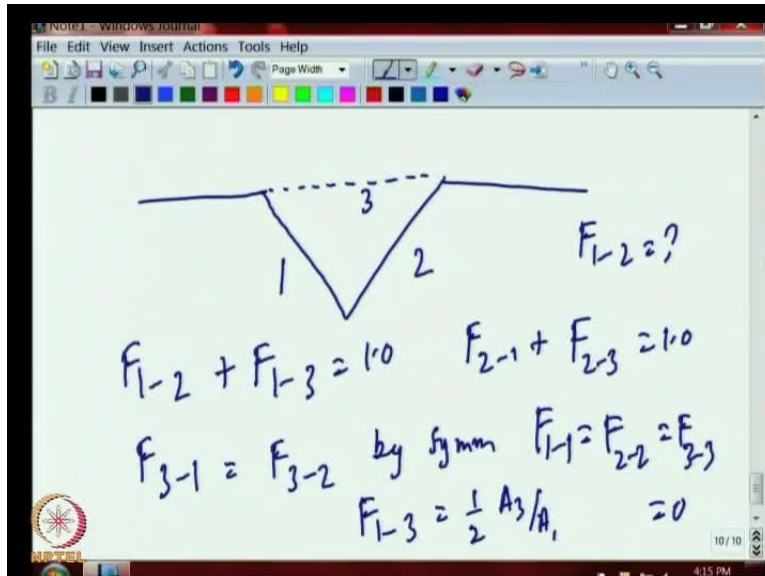 Note1 - Windows Journal
File Edit View Insert Actions Tools Help
Page Width
B I
3
1
2
F1-2 = ?
F1-2 + F1-3 = 1.0 F2-1 + F2-3 = 1.0
F3-1 = F3-2 by symm F1-1 = F2-2 = F3-3
F1-3 = 1/2 A3/A1 = 0
NPTEL
10/10
4:15 PM